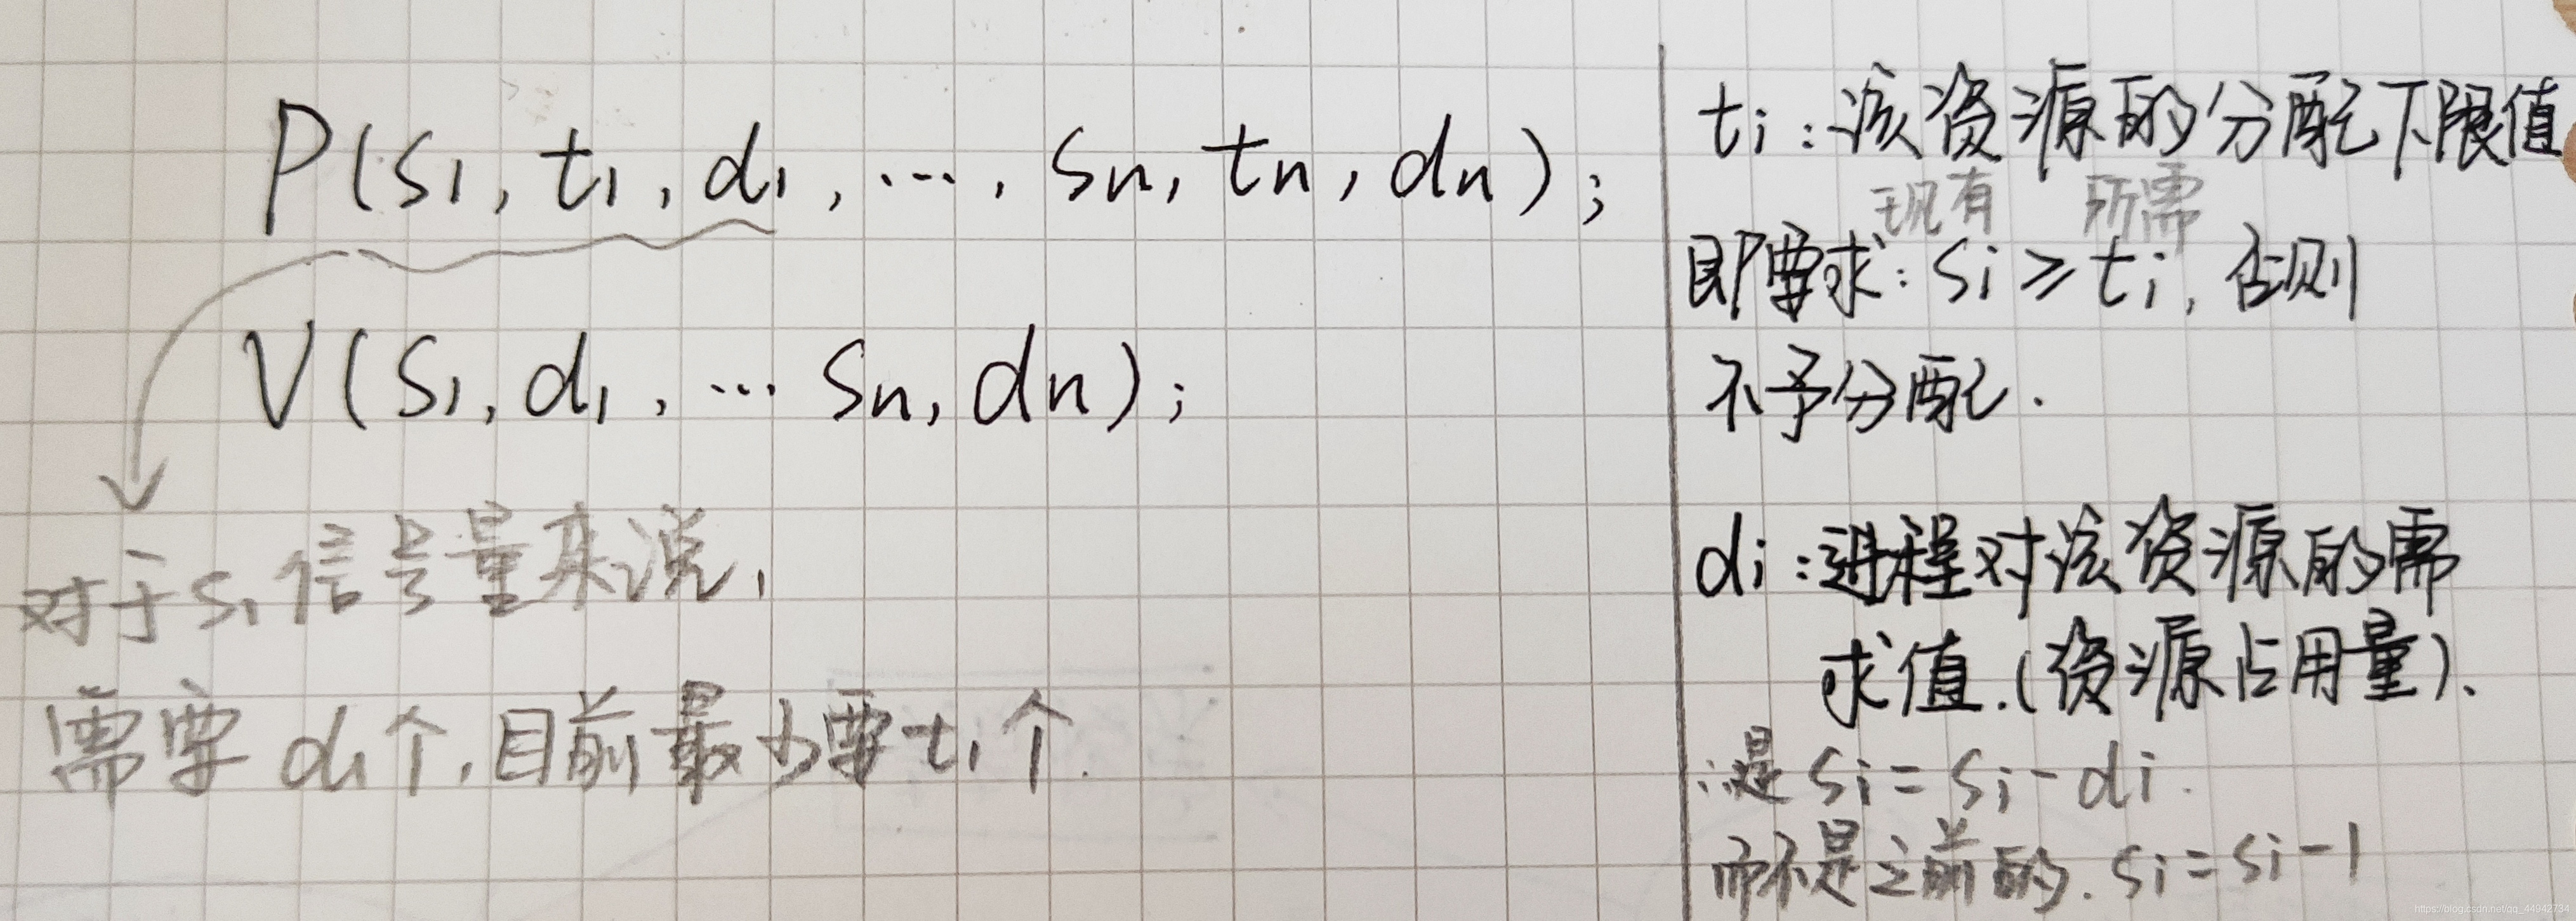 P(S1, t1, d1, ..., Sn, tn, dn);
V(S1, d1, ... Sn, dn);
对于S1信号量来说,
需要d1个,目前最少要t1个.
ti:该资源的分配下限值
现有 所需
即要求:Si≥ti,否则
不予分配.
di:进程对该资源的需
求值.(资源占用量).
∴是Si=Si-di.
而不是之前的.Si=Si-1
https://blog.csdn.net/qq_44942734